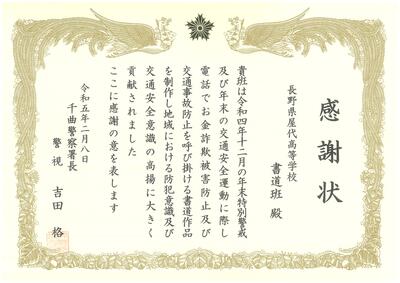 感謝状
長野県屋代高等学校
書道班 殿
貴班は令和四年十二月の年末特別警戒
及び年末の交通安全運動に際し
電話でお金詐欺被害防止及び
交通事故防止を呼び掛ける書道作品
を制作し地域における防犯意識及び
交通安全意識の高揚に大きく
貢献されました
ここに感謝の意を表します
令和五年二月八日
千曲警察署長
警視 吉田 格